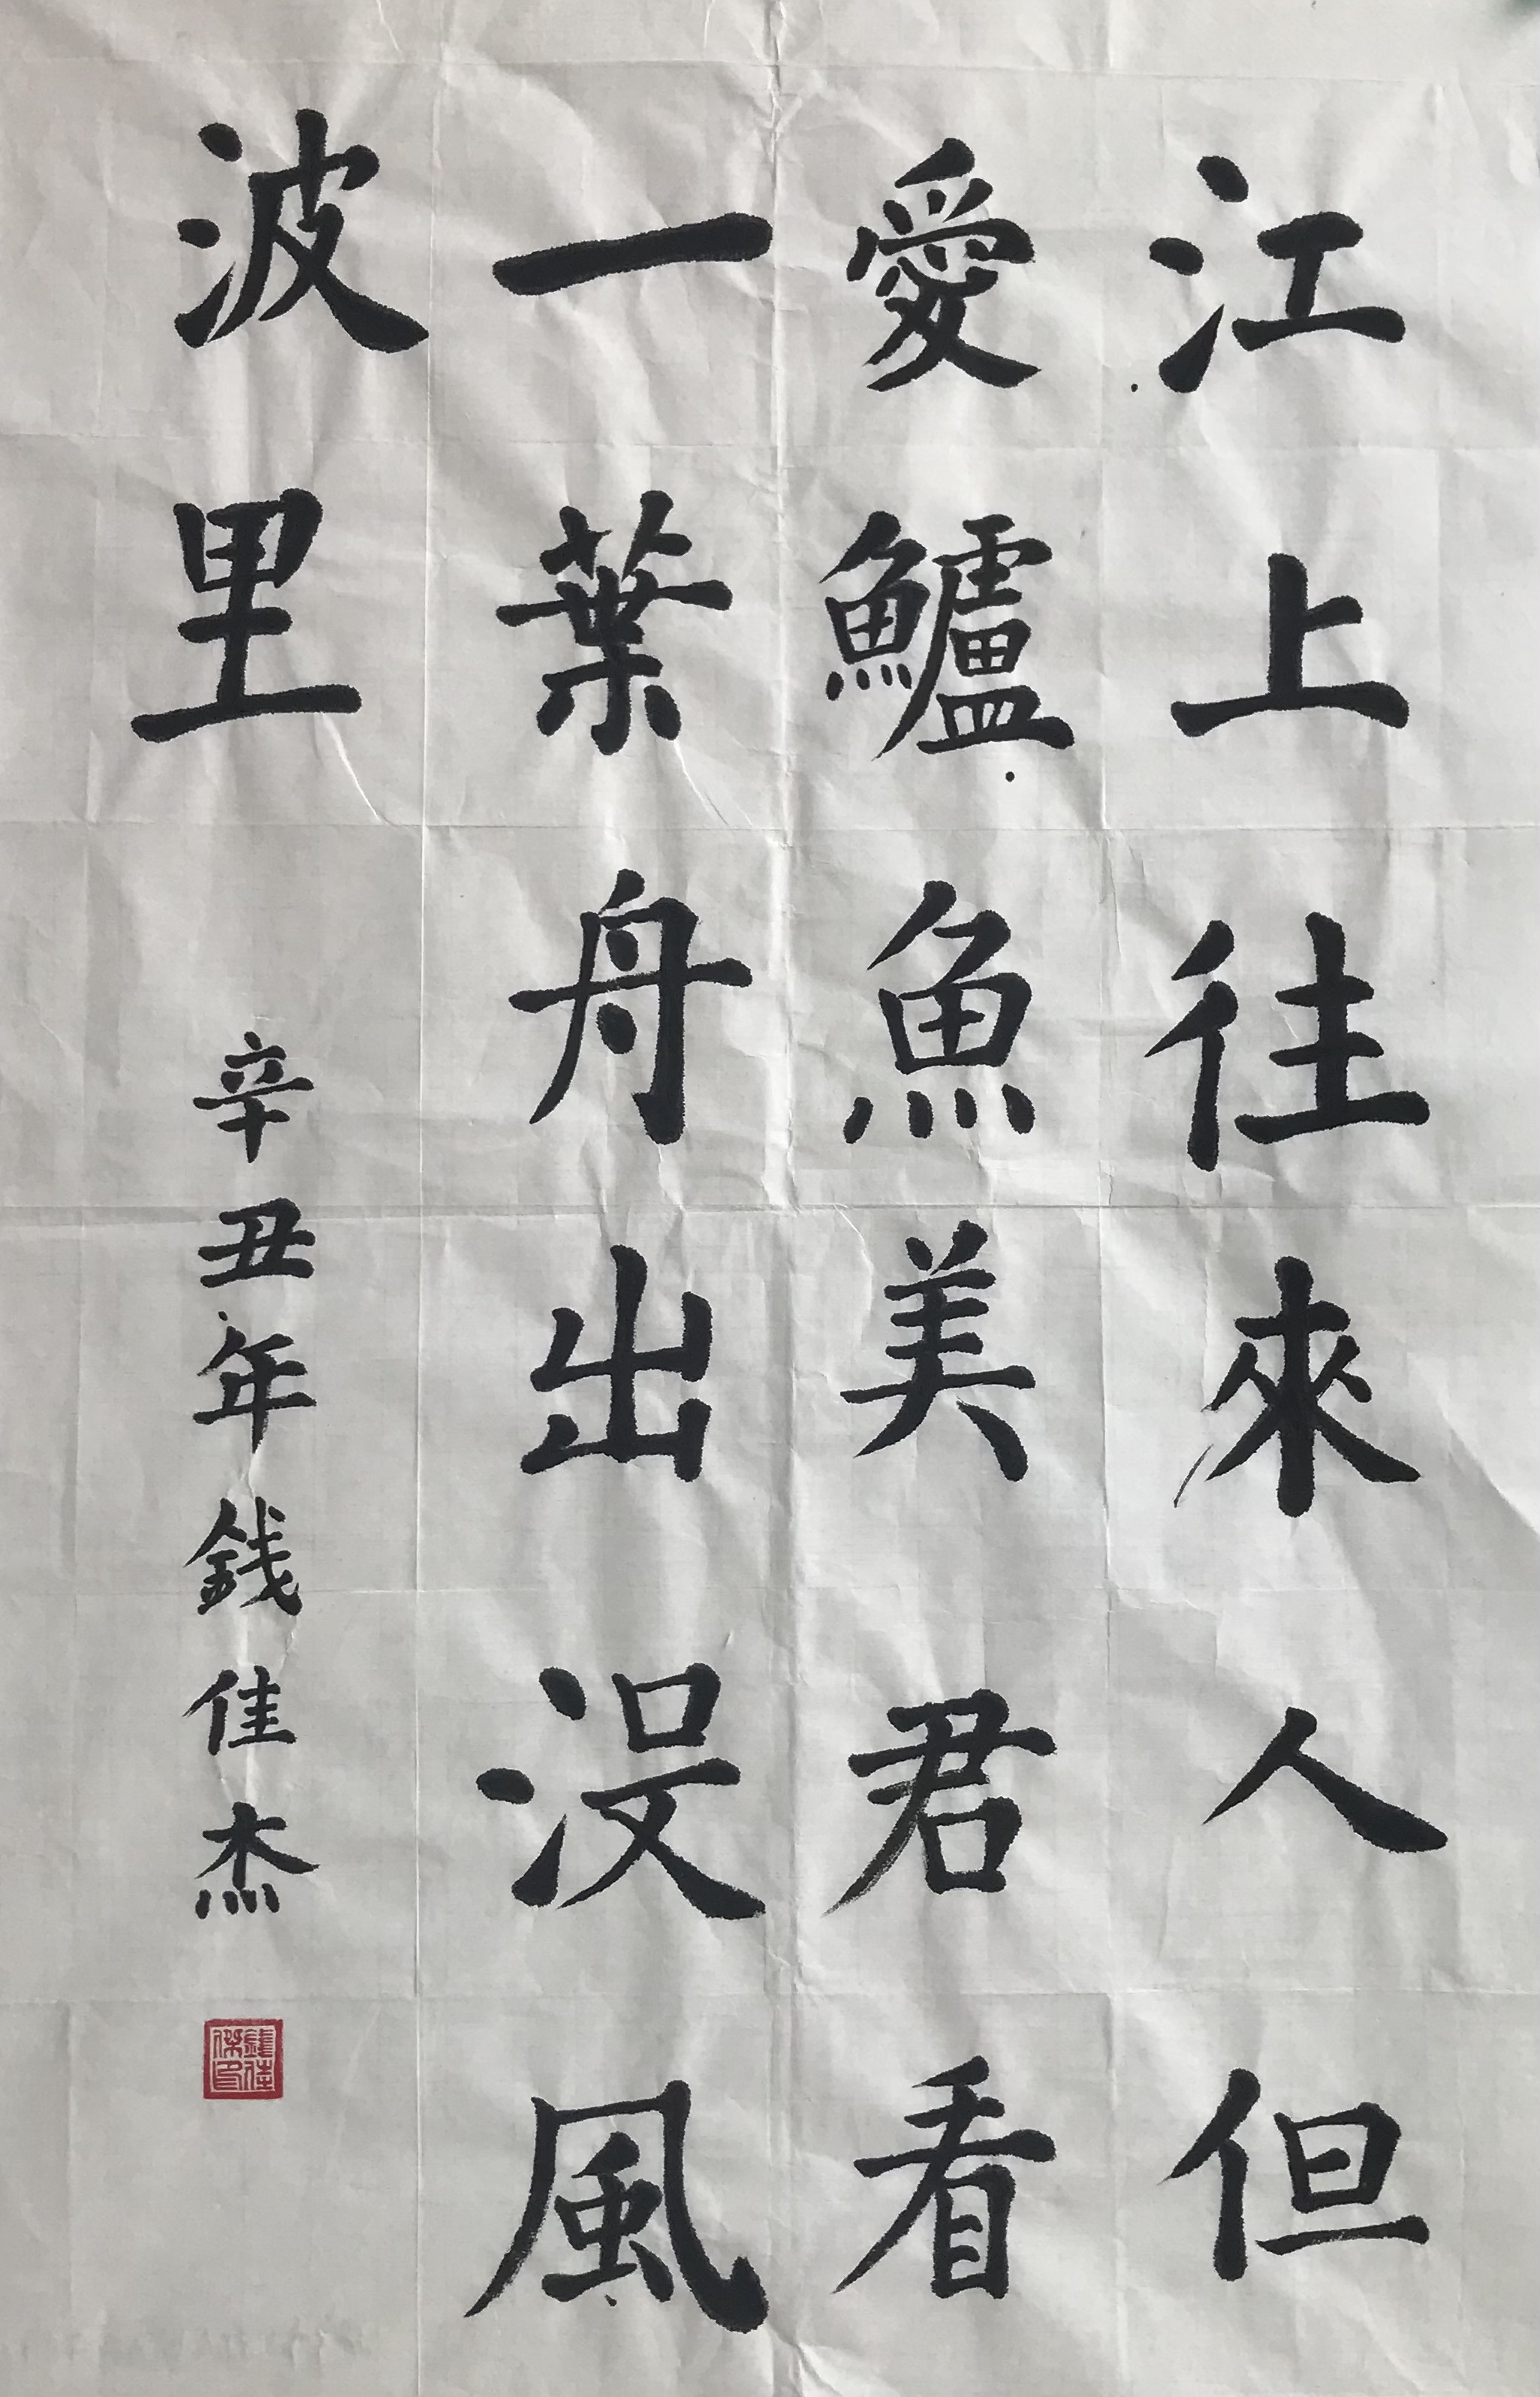 江上往來人但
愛鱸魚美君看
一葉舟出没風
波里
辛丑年錢佳杰
錢佳
傑印